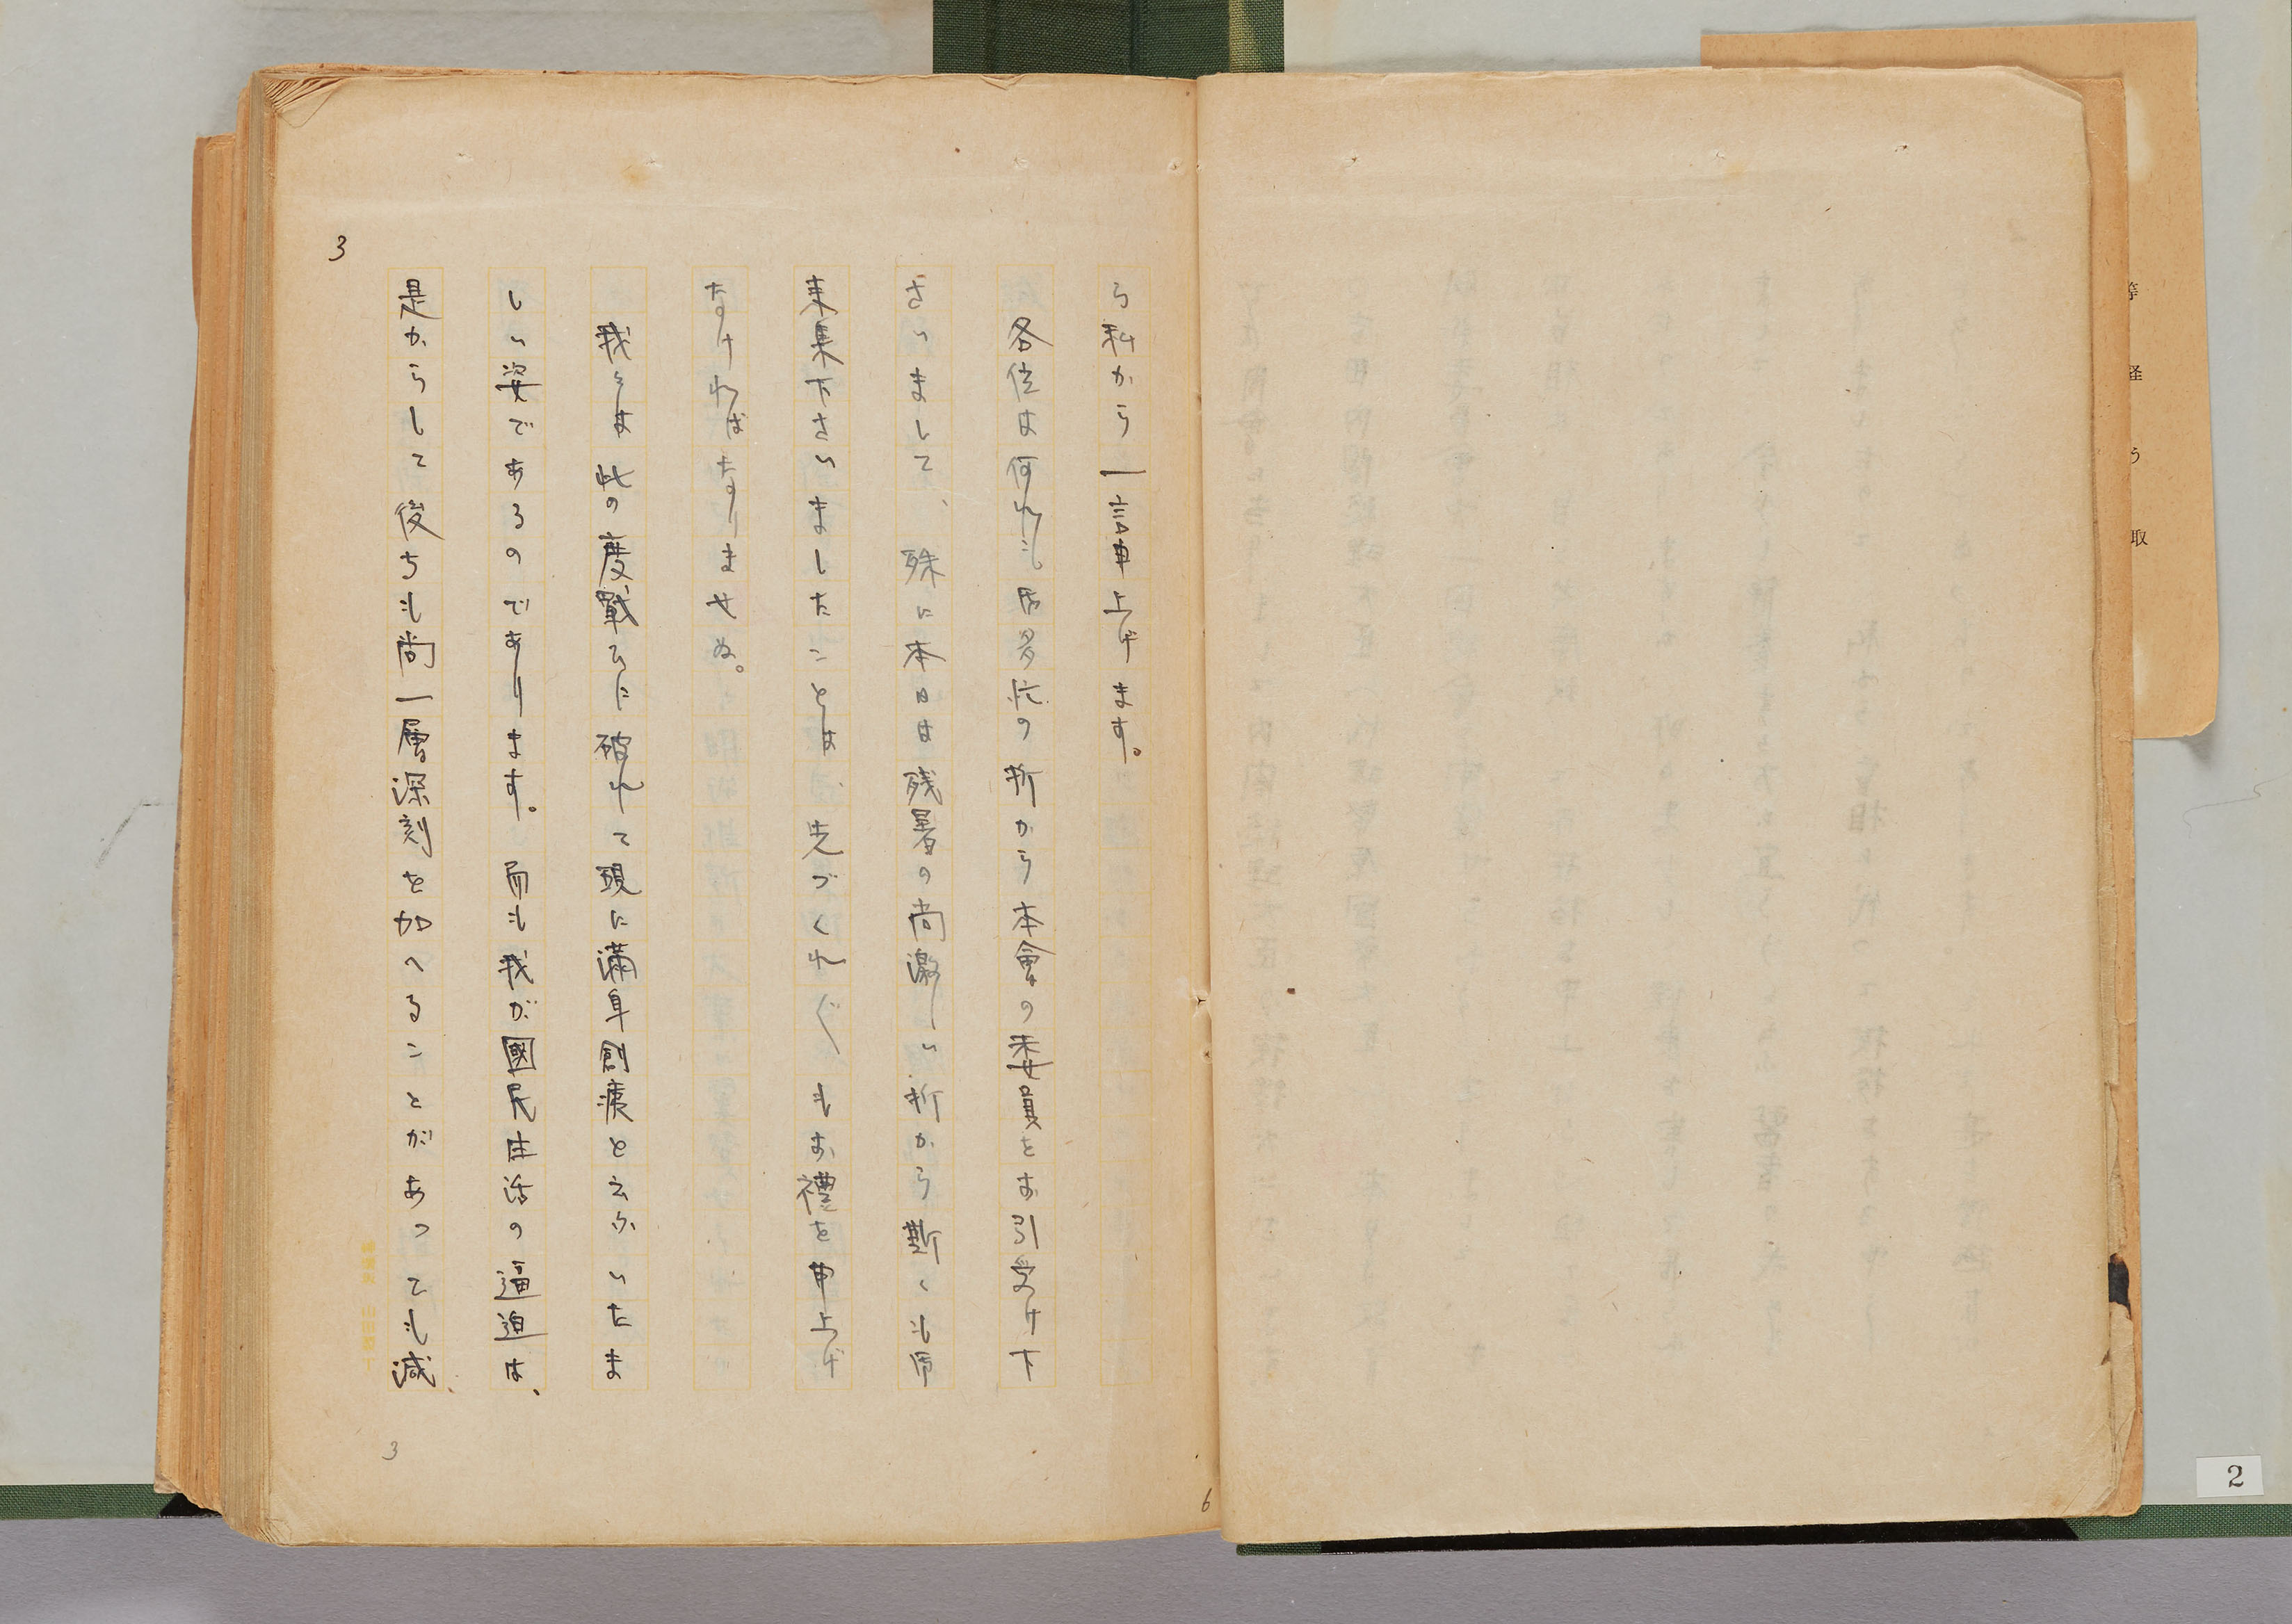 ら私から一言申上げます。
各位は何れも御多忙の折から本會の委員をお引受け下
さいまして、殊に本日は残暑の尚激しい折から斯くも御
来集下さいましたことは、先づくれ〲もお禮を申上げ
なければなりませぬ。
我々は此の度戰ひに破れて現に満身創痍と云ふいたま
しい姿であるのであります。而も我が國民生活の逼迫は、
是からして後ちも尚一層深刻を加へることがあっても減
3
3
6
等
経
う
取
2